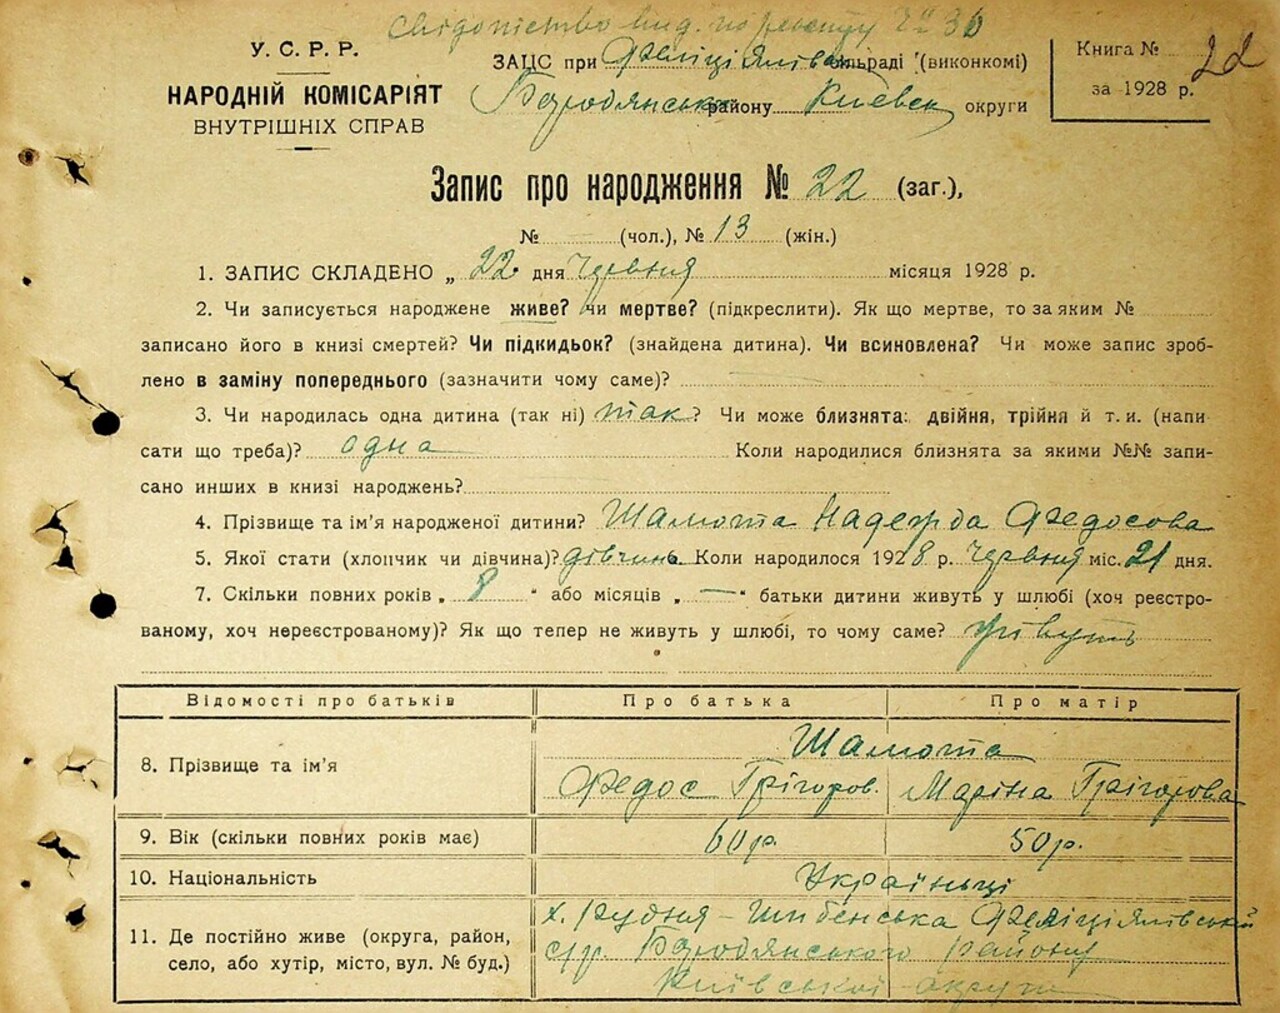 Свідоцтво вид. по реєстру № 36
У. С. Р. Р.
НАРОДНІЙ КОМІСАРІЯТ
ВНУТРІШНІХ СПРАВ
ЗАЦС при Феліціянівськ. сільраді (виконкомі)
Бородянськ. району Київськ. округи
Книга № 22
за 1928 р.
Запис про народження № 22 (заг.),
№ — (чол.), № 13 (жін.)
1. ЗАПИС СКЛАДЕНО „ 22 дня червня місяця 1928 р.
2. Чи записується народжене живе? чи мертве? (підкреслити). Як що мертве, то за яким №
записано його в книзі смертей? Чи підкидьок? (знайдена дитина). Чи всиновлена? Чи може запис зроб-
лено в заміну попереднього (зазначити чому саме)? —
3. Чи народилась одна дитина (так ні) так? Чи може близнята: двійня, трійня й т. и. (напи-
сати що треба)? одна Коли народилися близнята за якими №№ запи-
сано инших в книзі народжень?
4. Прізвище та ім'я народженої дитини? Шамота Надежда Федосова
5. Якої стати (хлопчик чи дівчина)? дівчина. Коли народилося 1928 р. червня міс. 21 дня.
7. Скільки повних років „ 8 " або місяців „ — " батьки дитини живуть у шлюбі (хоч реєстро-
ваному, хоч нереєстрованому)? Як що тепер не живуть у шлюбі, то чому саме? живуть
Відомості про батьків Про батька Про матір
8. Прізвище та ім'я Шамота
Федос Грігоров. Маріна Грігорова
9. Вік (скільки повних років має) 60 р. 50 р.
10. Національність Українці
11. Де постійно живе (округа, район,
село, або хутір, місто, вул. № буд.)
х. Рудня-Шибенська Феліціянівськй
с/р. Бородянського району
Київської округи